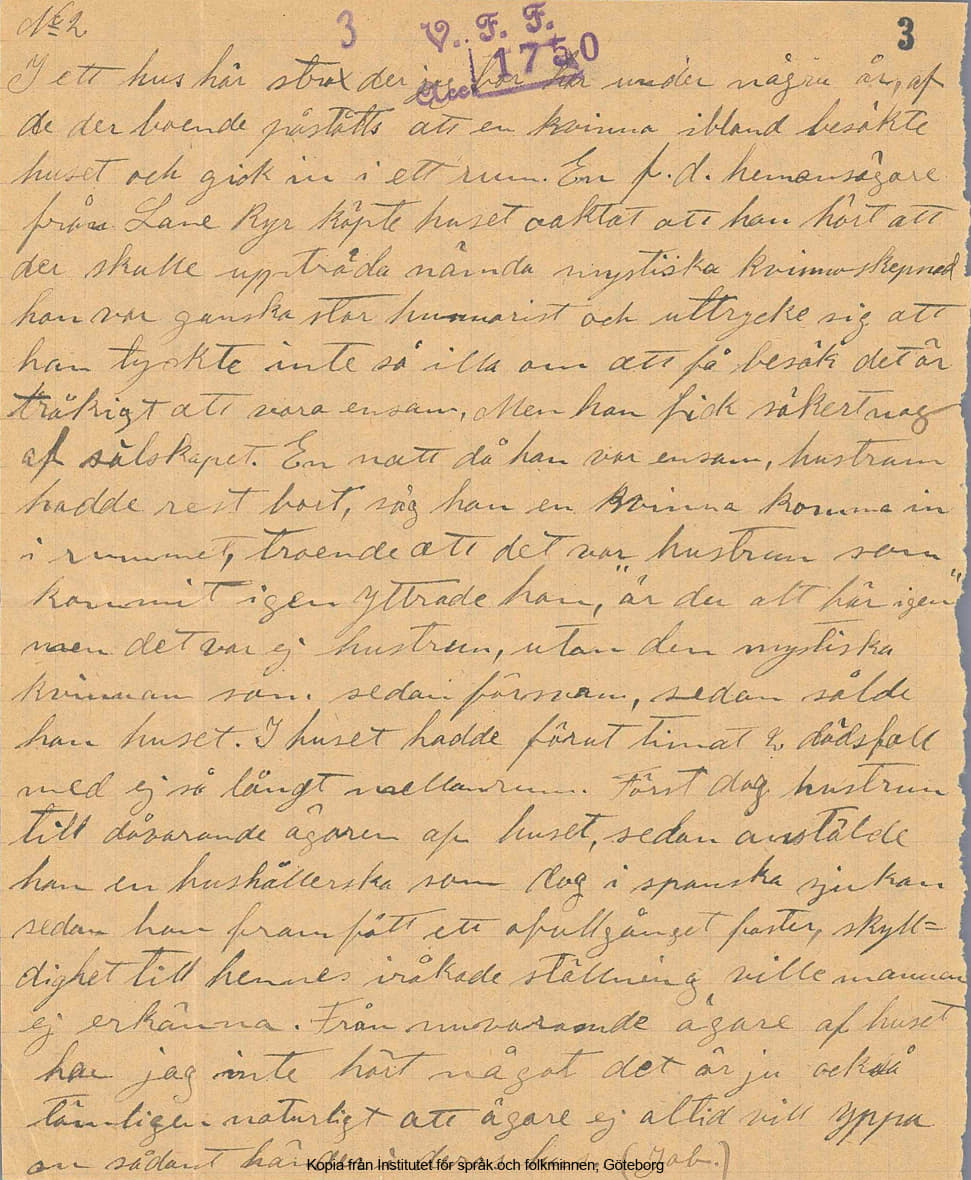 No 2 3 V. F. F. 3
Acc 1750
I ett hus här strax der jag bor har under några år, af
de der boende påståtts att en kvinna ibland besökte
huset och gick in i ett rum. En f. d. hemansägare
från Lane Ryr köpte huset oaktat att han hört att
der skulle uppträda nämda mystiska kvinnoskepnad
han var ganska stor humorist och uttrycke sig att
han tyckte inte så illa om att få besök det är
tråkigt att vara ensam, Men han fick säkert nog
af sälskapet. En natt då han var ensam, hustrun
hadde rest bort, såg han en kvinna komma in
i rummet, troende att det var hustrun som
kommit igen yttrade han, "är du alt här igen"
men det var ej hustrun, utan den mystiska
kvinnan som sedan försvann, sedan sålde
han huset. I huset hadde förut timat 2 dödsfall
med ej så långt mellanrum. Först dog hustrun
till dåvarande ägaren af huset, sedan anstälde
han en hushållerska som dog i spanska sjukan
sedan hon framfött ett ofullgånget foster, skyll=
dighet till hennes iråkade ställning ville mannen
ej erkänna. Från nuvarande ägare af huset
har jag inte hört något det är ju också
tämligen naturligt att ägare ej altid vill yppa
om sådant händer i deras hus. (Job.)
Kopia från Institutet för språk och folkminnen, Göteborg